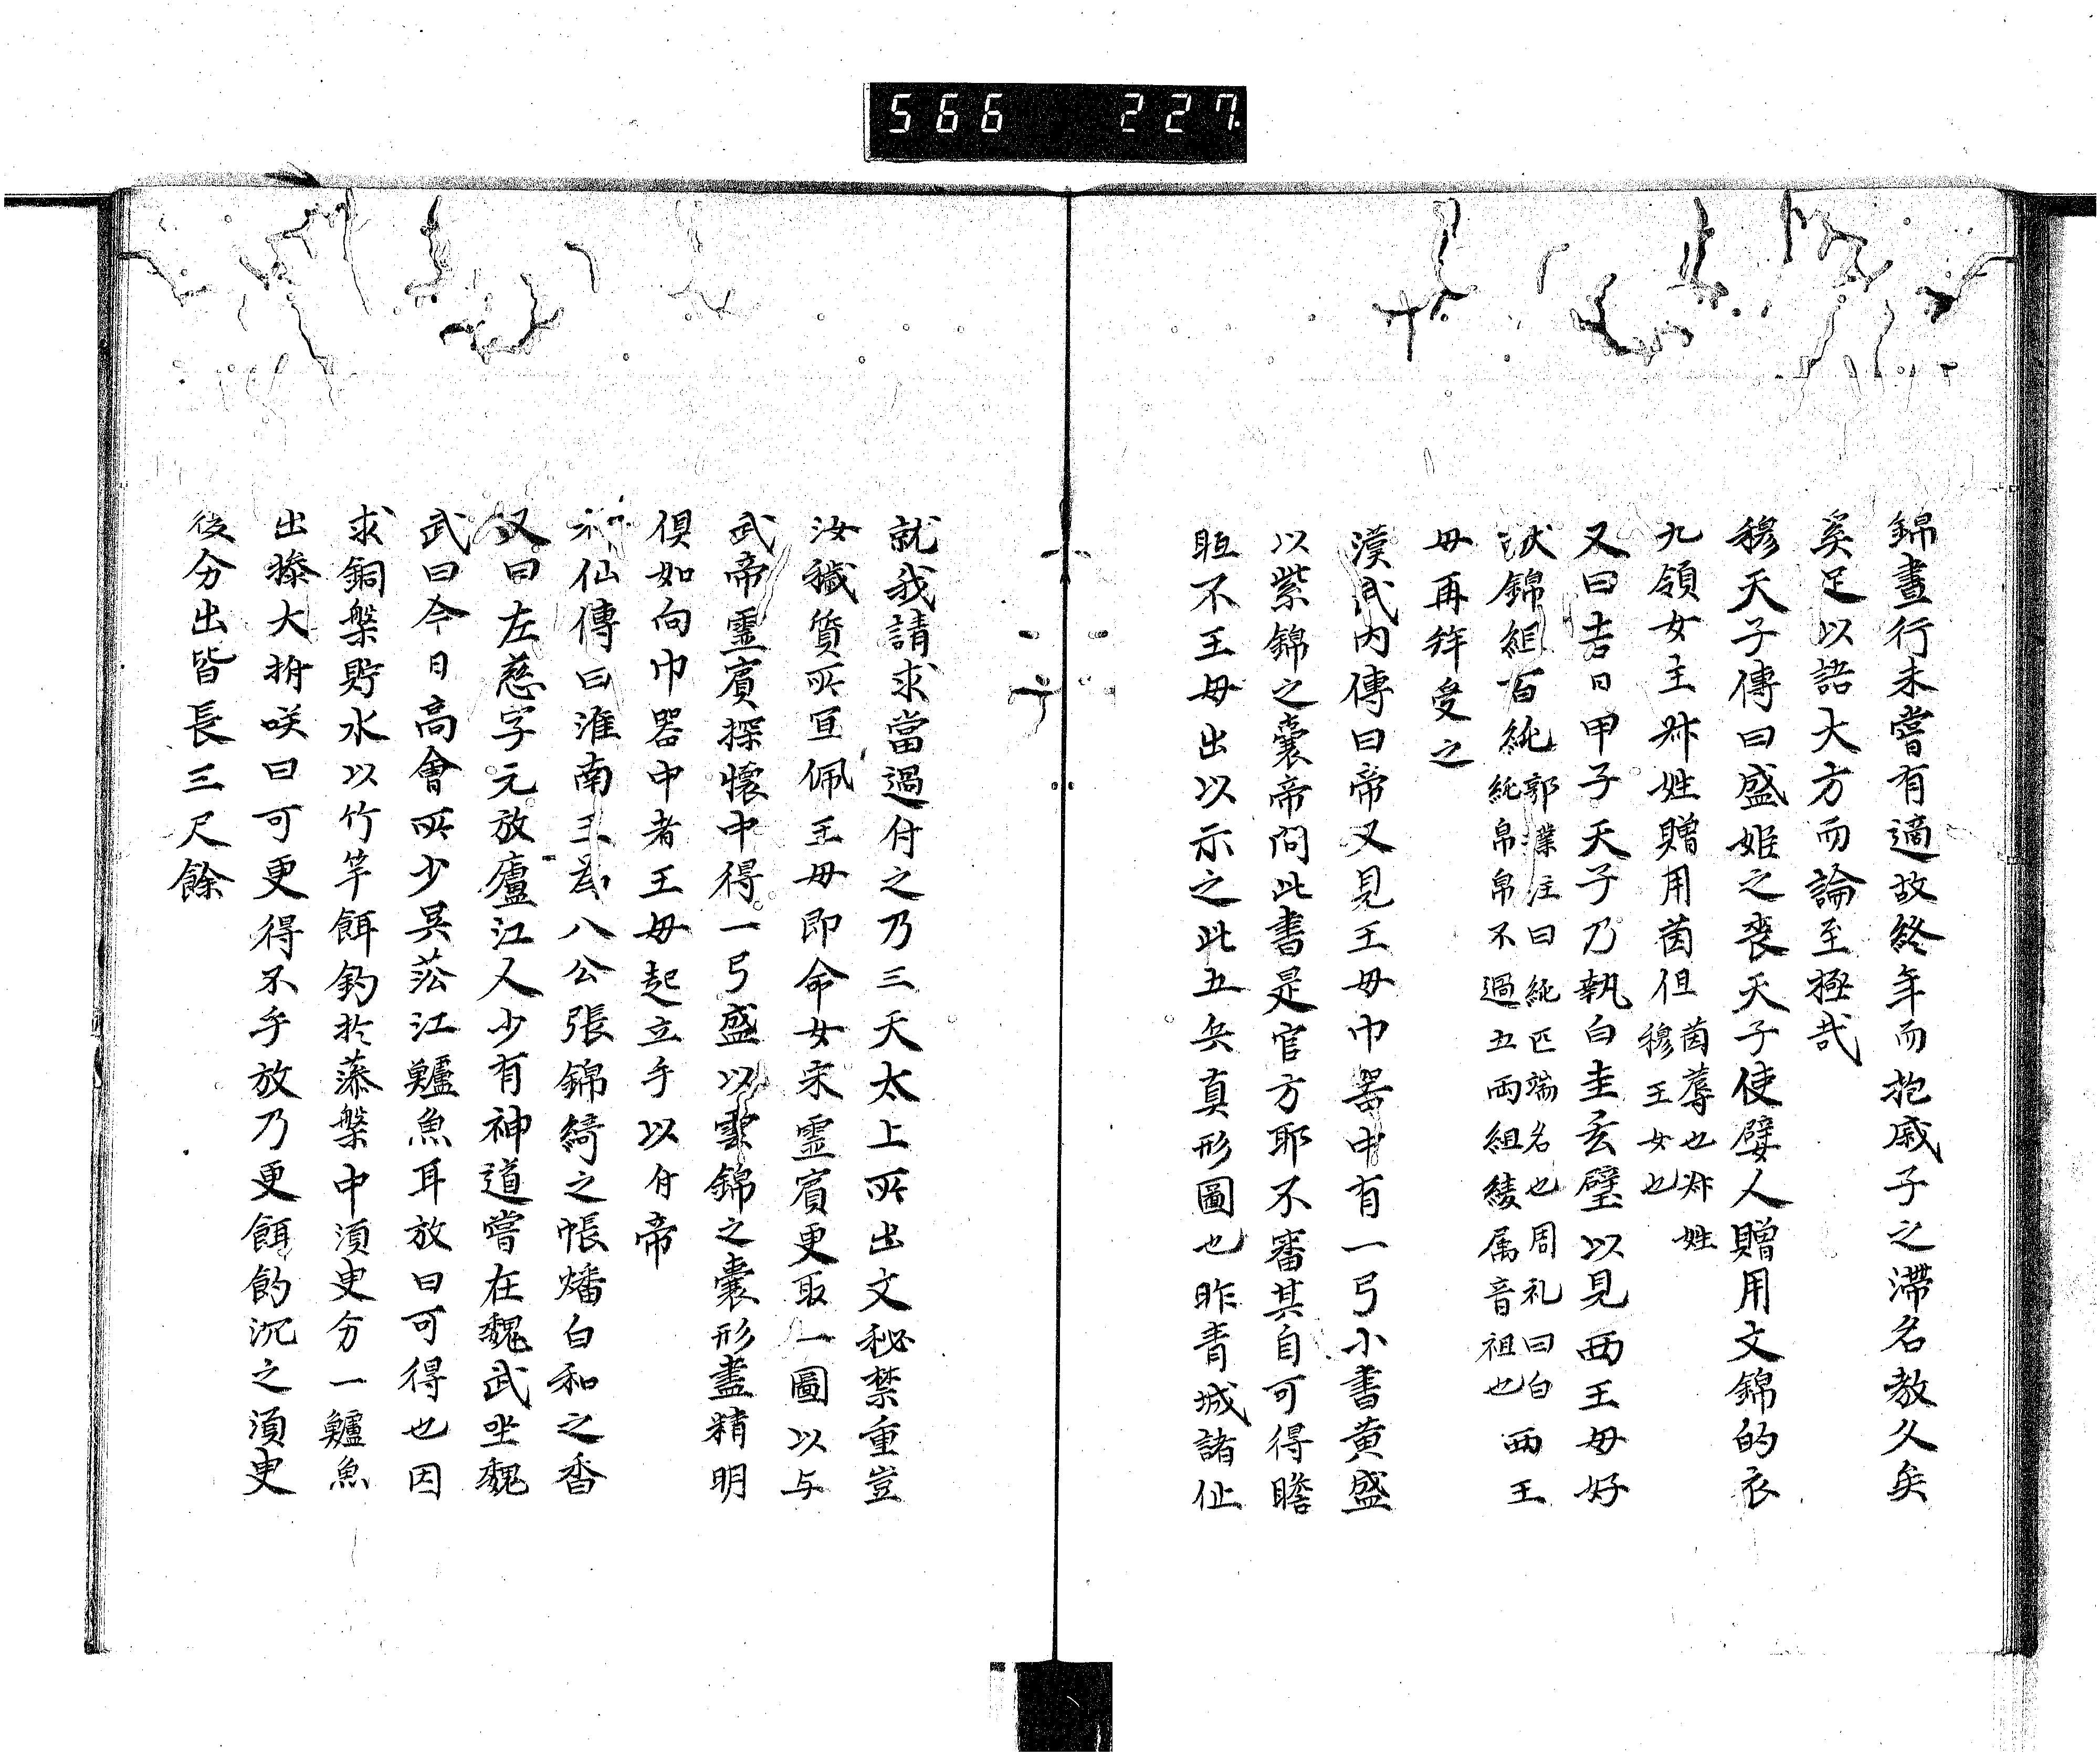 566 227
錦晝行未嘗有適故終年而抱戚子之滯名教久矣
奚足以語大方而論至極哉
穆天子傳曰盛姫之喪天子使嬖人贈用文錦的衣
九領女主叔姓贈用茵但茵蓐也叔姓
穆王女也
又曰吉日甲子天子乃執白圭玄璧以見西王母好
状錦組百純郭璞注曰純匹端名也周礼曰白
純帛帛不過五両組綾属音祖也西王
母再拜受之
漢武内傳曰帝又見王母巾器中有一弓小書黄盛
以紫錦之囊帝問此書是官方耶不審其自可得瞻
眄不王母出以示之此五兵真形圖也昨青城諸仙
就我請求當過付之乃三天太上所出文秘禁重豈
汝穢質所宜佩王母即命女宋霊賔更取一圖以与
武帝霊賔探懷中得一弓盛以雲錦之囊形盡精明
俱如向巾器中者王母起立手以付帝
神仙傳曰淮南王為八公張錦綺之帳燔白和之香
又曰左慈字元放廬江人少有神道嘗在魏武坐魏
武曰今日高會所少吴菘江鱸魚耳放曰可得也因
求銅槃貯水以竹竿餌釣於藻槃中湏臾分一鱸魚
出搽大拊咲曰可更得不乎放乃更餌釣沉之湏臾
後分出皆長三尺餘